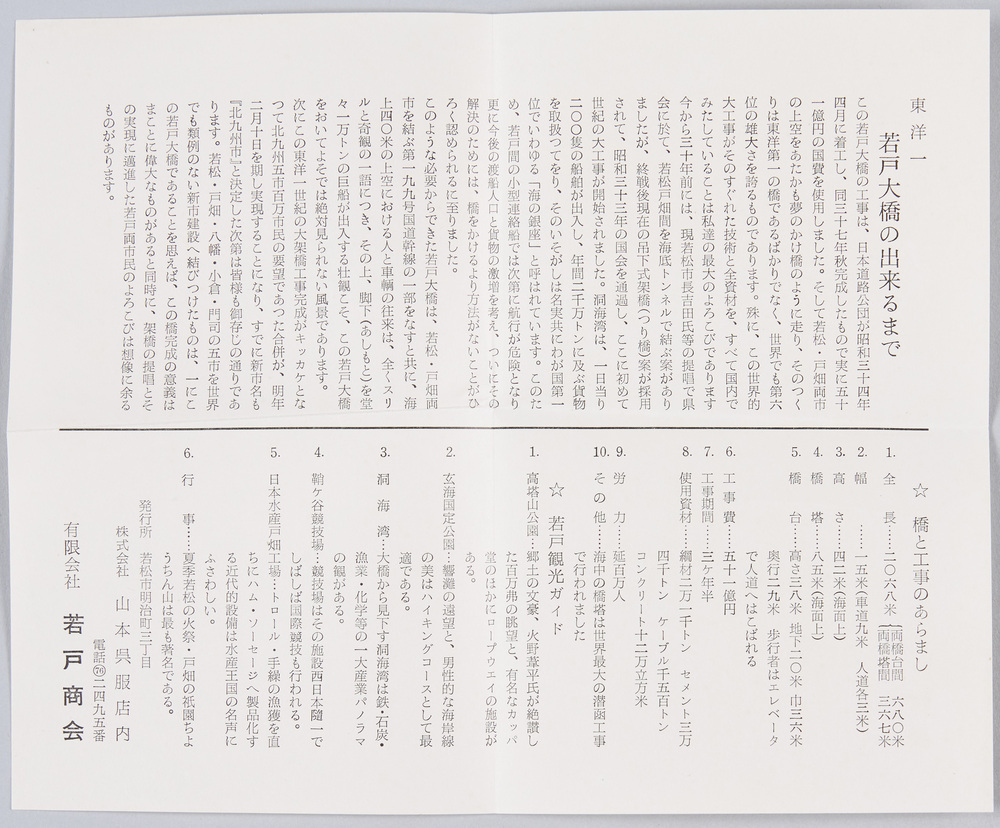 東洋一
若戸大橋の出来るまで
この若戸大橋の工事は、日本道路公団が昭和三十四年
四月に着工し、同三十七年秋完成したもので実に五十
一億円の国費を使用しました。そして若松・戸畑両市
の上空をあたかも夢のかけ橋のように走り、そのつく
りは東洋第一の橋であるばかりでなく、世界でも第六
位の雄大さを誇るものであります。殊に、この世界的
大工事がそのすぐれた技術と全資材を、すべて国内で
みたしていることは私達の最大のよろこびであります
今から三十年前には、現若松市長吉田氏等の提唱で県
会に於て、若松戸畑間を海底トンネルで結ぶ案があり
ましたが、終戦後現在の吊下式架橋(つり橋)案が採用
されて、昭和三十三年の国会を通過し、ここに初めて
世紀の大工事が開始されました。洞海湾は、一日当り
二〇〇隻の船舶が出入し、年間二千万トンに及ぶ貨物
を取扱つてをり、そのいそがしは名実共にわが国第一
位でいわゆる「海の銀座」と呼ばれています。このた
め、若戸間の小型運絡船では次第に航行が危険となり
更に今後の渡船人口と貨物の激増を考え、ついにその
解決のためには、橋をかけるより方法がないことがひ
ろく認められるに至りました。
このような必要からできた若戸大橋は、若松・戸畑両
市を結ぶ第一九九号国道幹線の一部をなすと共に、海
上四〇米の上空における人と車輛の往来は、全くスリ
ルと奇観の一語につき、その上、脚下(あしもと)を堂
々一万トンの巨船が出入する壮観こそ、この若戸大橋
をおいてよそでは絶対見られない風景であります。
次にこの東洋一世紀の大架橋工事完成がキッカケとな
つて北九州五市百万市民の要望であつた合併が、明年
二月十日を期し実現することになり、すでに新市名も
『北九州市』と決定した次第は皆様も御存じの通りであ
ります。若松・戸畑・八幡・小倉・門司の五市を世界
でも類例のない新市建設へ結びつけたものは、一にこ
の若戸大橋であることを思えば、この橋完成の意義は
まことに偉大なものがあると同時に、架橋の提唱とそ
の実現に邁進した若戸両市民のよろこびは想像に余る
ものがあります。
☆ 橋と工事のあらまし
1. 全長……二〇六八米(両橋台間 六八〇米
両橋塔間 三六七米
2. 幅……一五米(車道九米 人道各三米)
3. 高さ……四二米(海面上)
4. 橋塔……八五米(海面上)
5. 橋台……高さ三八米 地下二〇米 巾三六米
奥行二九米 歩行者はエレベータ
で人道へはこばれる
6. 工事費……五十一億円
7. 工事期間……三ヶ年半
8. 使用資材……綱材二万一千トン セメント三万
四千トン ケーブル千五百トン
コンクリート十二万立方米
9. 労力……延百万人
10. その他……海中の橋塔は世界最大の潜函工事
で行われました
☆ 若戸観光ガイド
1. 高塔山公園…郷土の文豪、火野葦平氏が絶讃し
た百万弗の眺望と、有名なカッパ
堂のほかにロープウエイの施設が
ある。
2. 玄海国定公園…響灘の遠望と、男性的な海岸線
の美はハイキングコースとして最
適である。
3. 洞海湾…大橋から見下す洞海湾は鉄・石炭・
漁業・化学等の一大産業パノラマ
の観がある。
4. 鞘ケ谷競技場…競技場はその施設西日本随一で
しばしば国際競技も行われる。
5. 日本水産戸畑工場…トロール・手繰の漁獲を直
ちにハム・ソーセージへ製品化す
る近代的設備は水産王国の名声に
ふさわしい。
6. 行事……夏季若松の火祭・戸畑の祇園ちょ
うちん山は最も著名である。
発行所 若松市明治町三丁目
株式会社 山本呉服店内
電話㊆二四九五番
有限会社 若戸商会